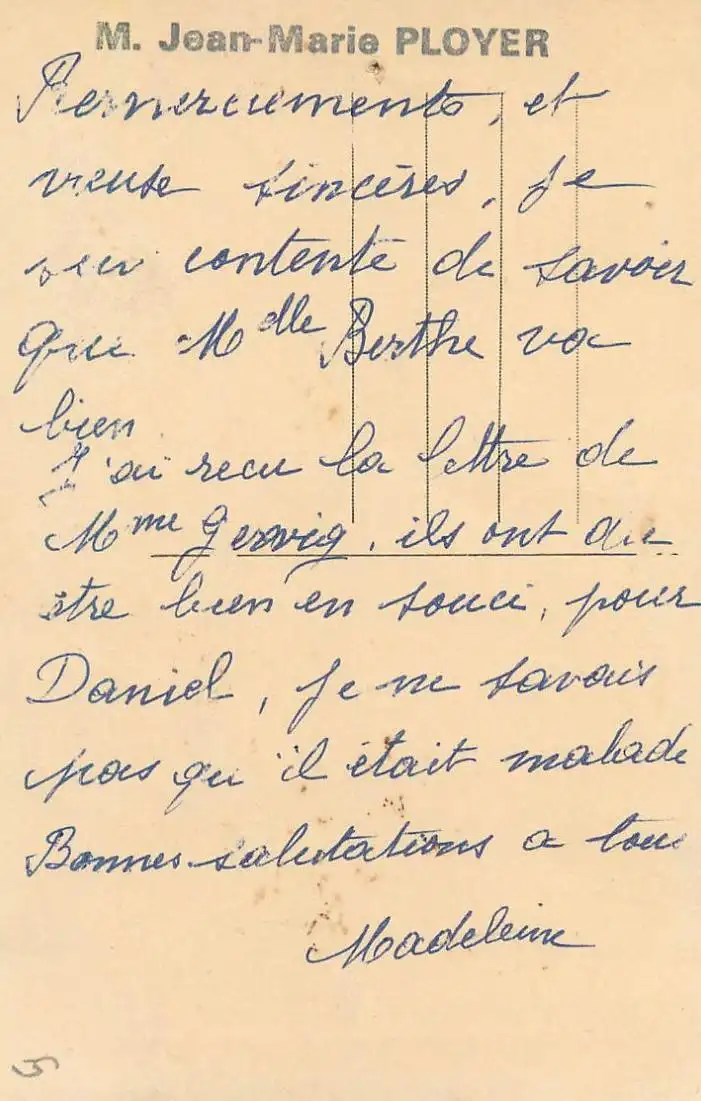 M. Jean-Marie PLOYER
Remerciements, et
vœux sincères, je
suis contente de savoir
que Mdlle Berthe va
bien
J'ai recu la lettre de
Mme Gervig, ils ont du
être bien en souci, pour
Daniel, je ne savais
pas qu'il était malade
Bonnes salutations a tous
Madeleine
5